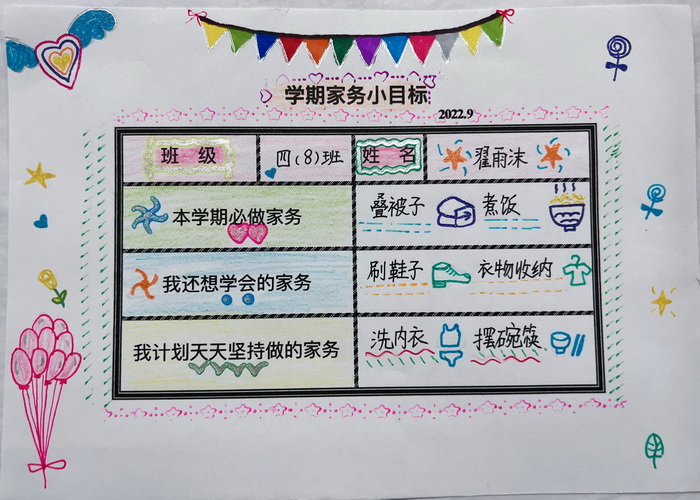 学期家务小目标
2022.9
班 级 四(8)班 姓 名 翟雨沫
本学期必做家务 叠被子 煮饭
我还想学会的家务 刷鞋子 衣物收纳
我计划天天坚持做的家务 洗内衣 摆碗筷